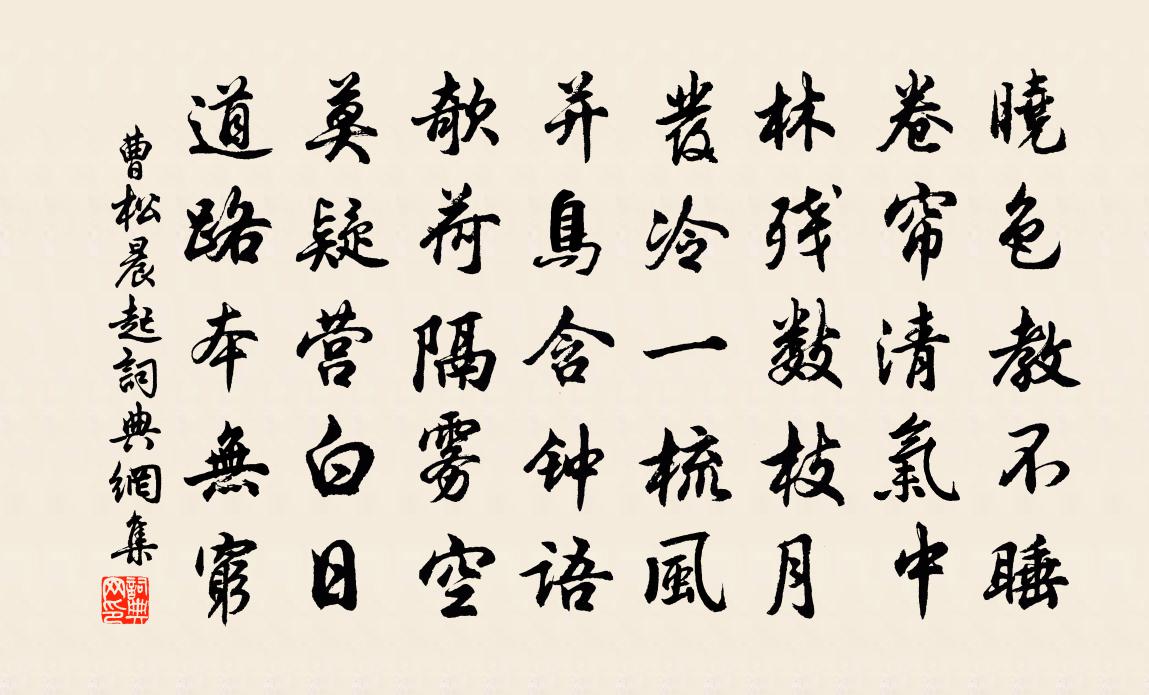 曉色教不睡
卷帘清氣中
林残數枝月
發冷一梳風
并鳥含钟語
欹荷隔雾空
莫疑营白日
道路本無窮
曹松晨起詞典網集
詞典网印